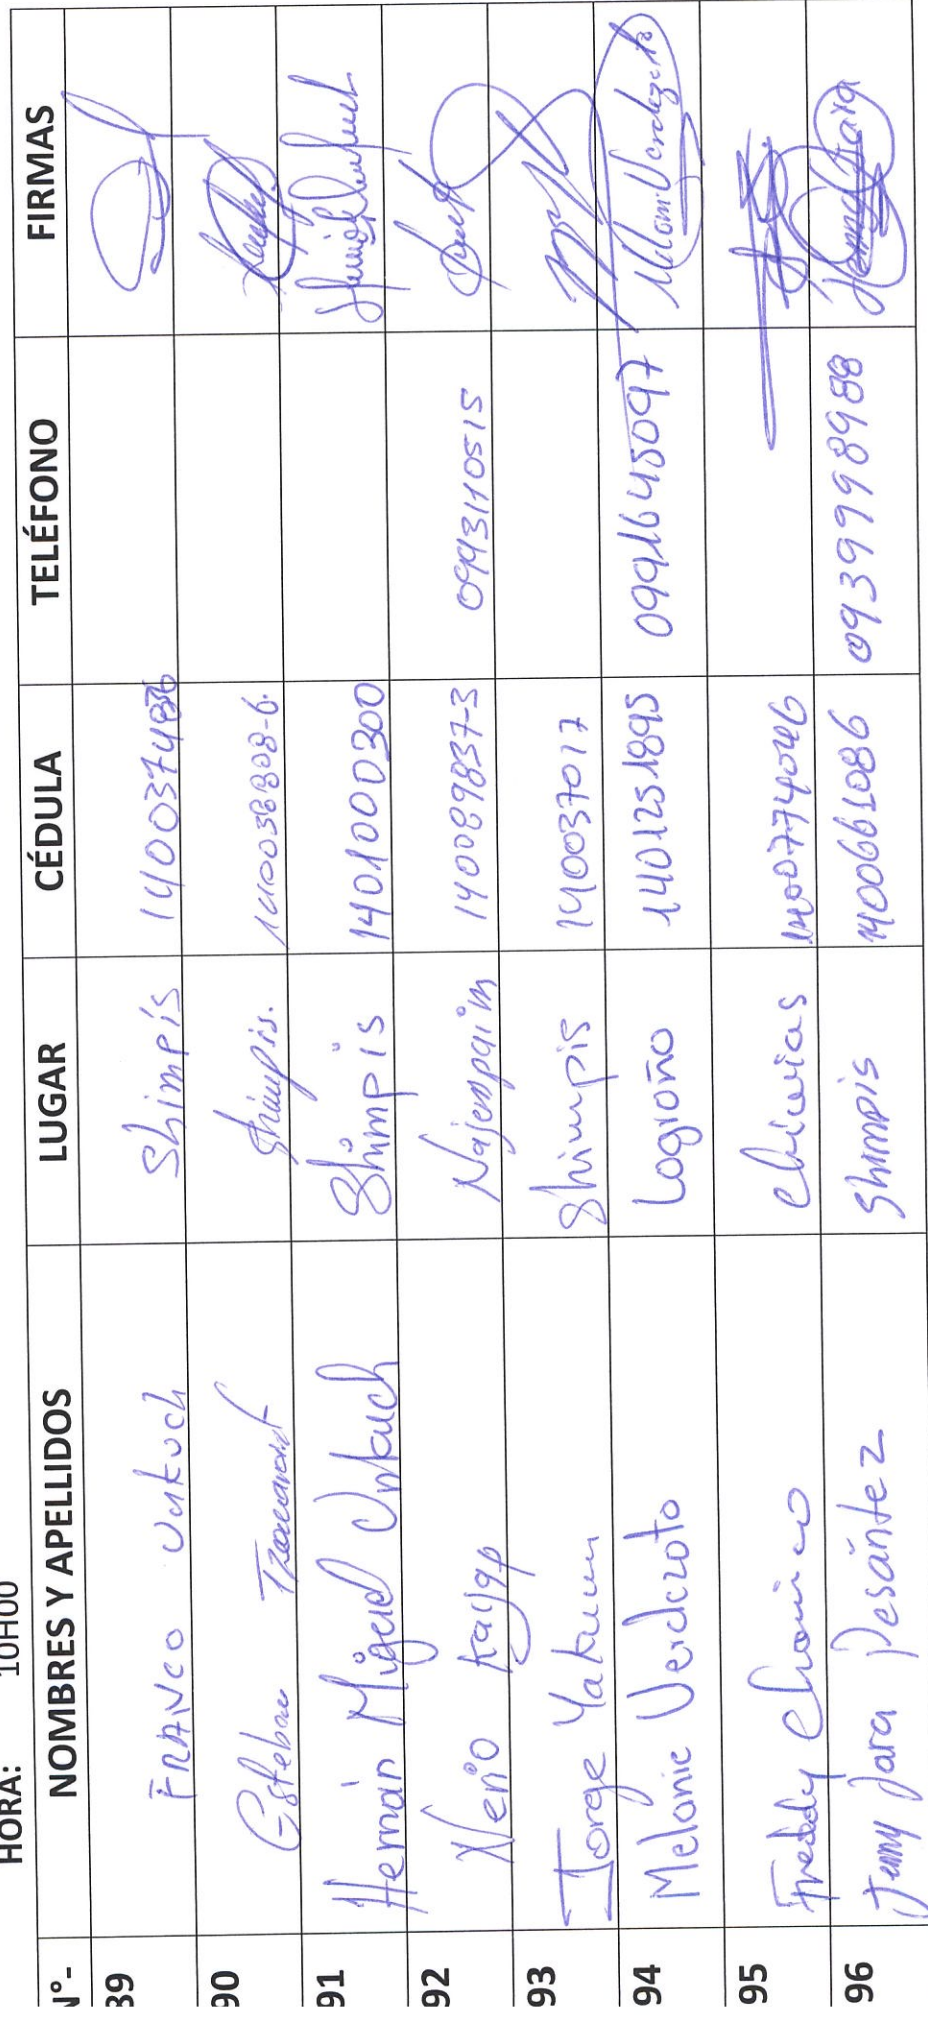 HORA: 10H00
N°- NOMBRES Y APELLIDOS LUGAR CÉDULA TELÉFONO FIRMAS
89 FRANCO Unkuch Shimpís
90 Esteban Shimpis. 140038808-6.
91 Hernán Miguel Unkuch Shimpis 1401000300
92 Nerio Kayap Najempaim 140089837-3 0993110515
93 Jorge Yakum Shimpis 140037017
94 Melanie Verdezoto Logroño 1401251895 0991645097 Melani Verdezoto
95 Freddy Chamico Chiwias
96 Jenny Jara Pesántez Shimpis 1400661086 0939998988